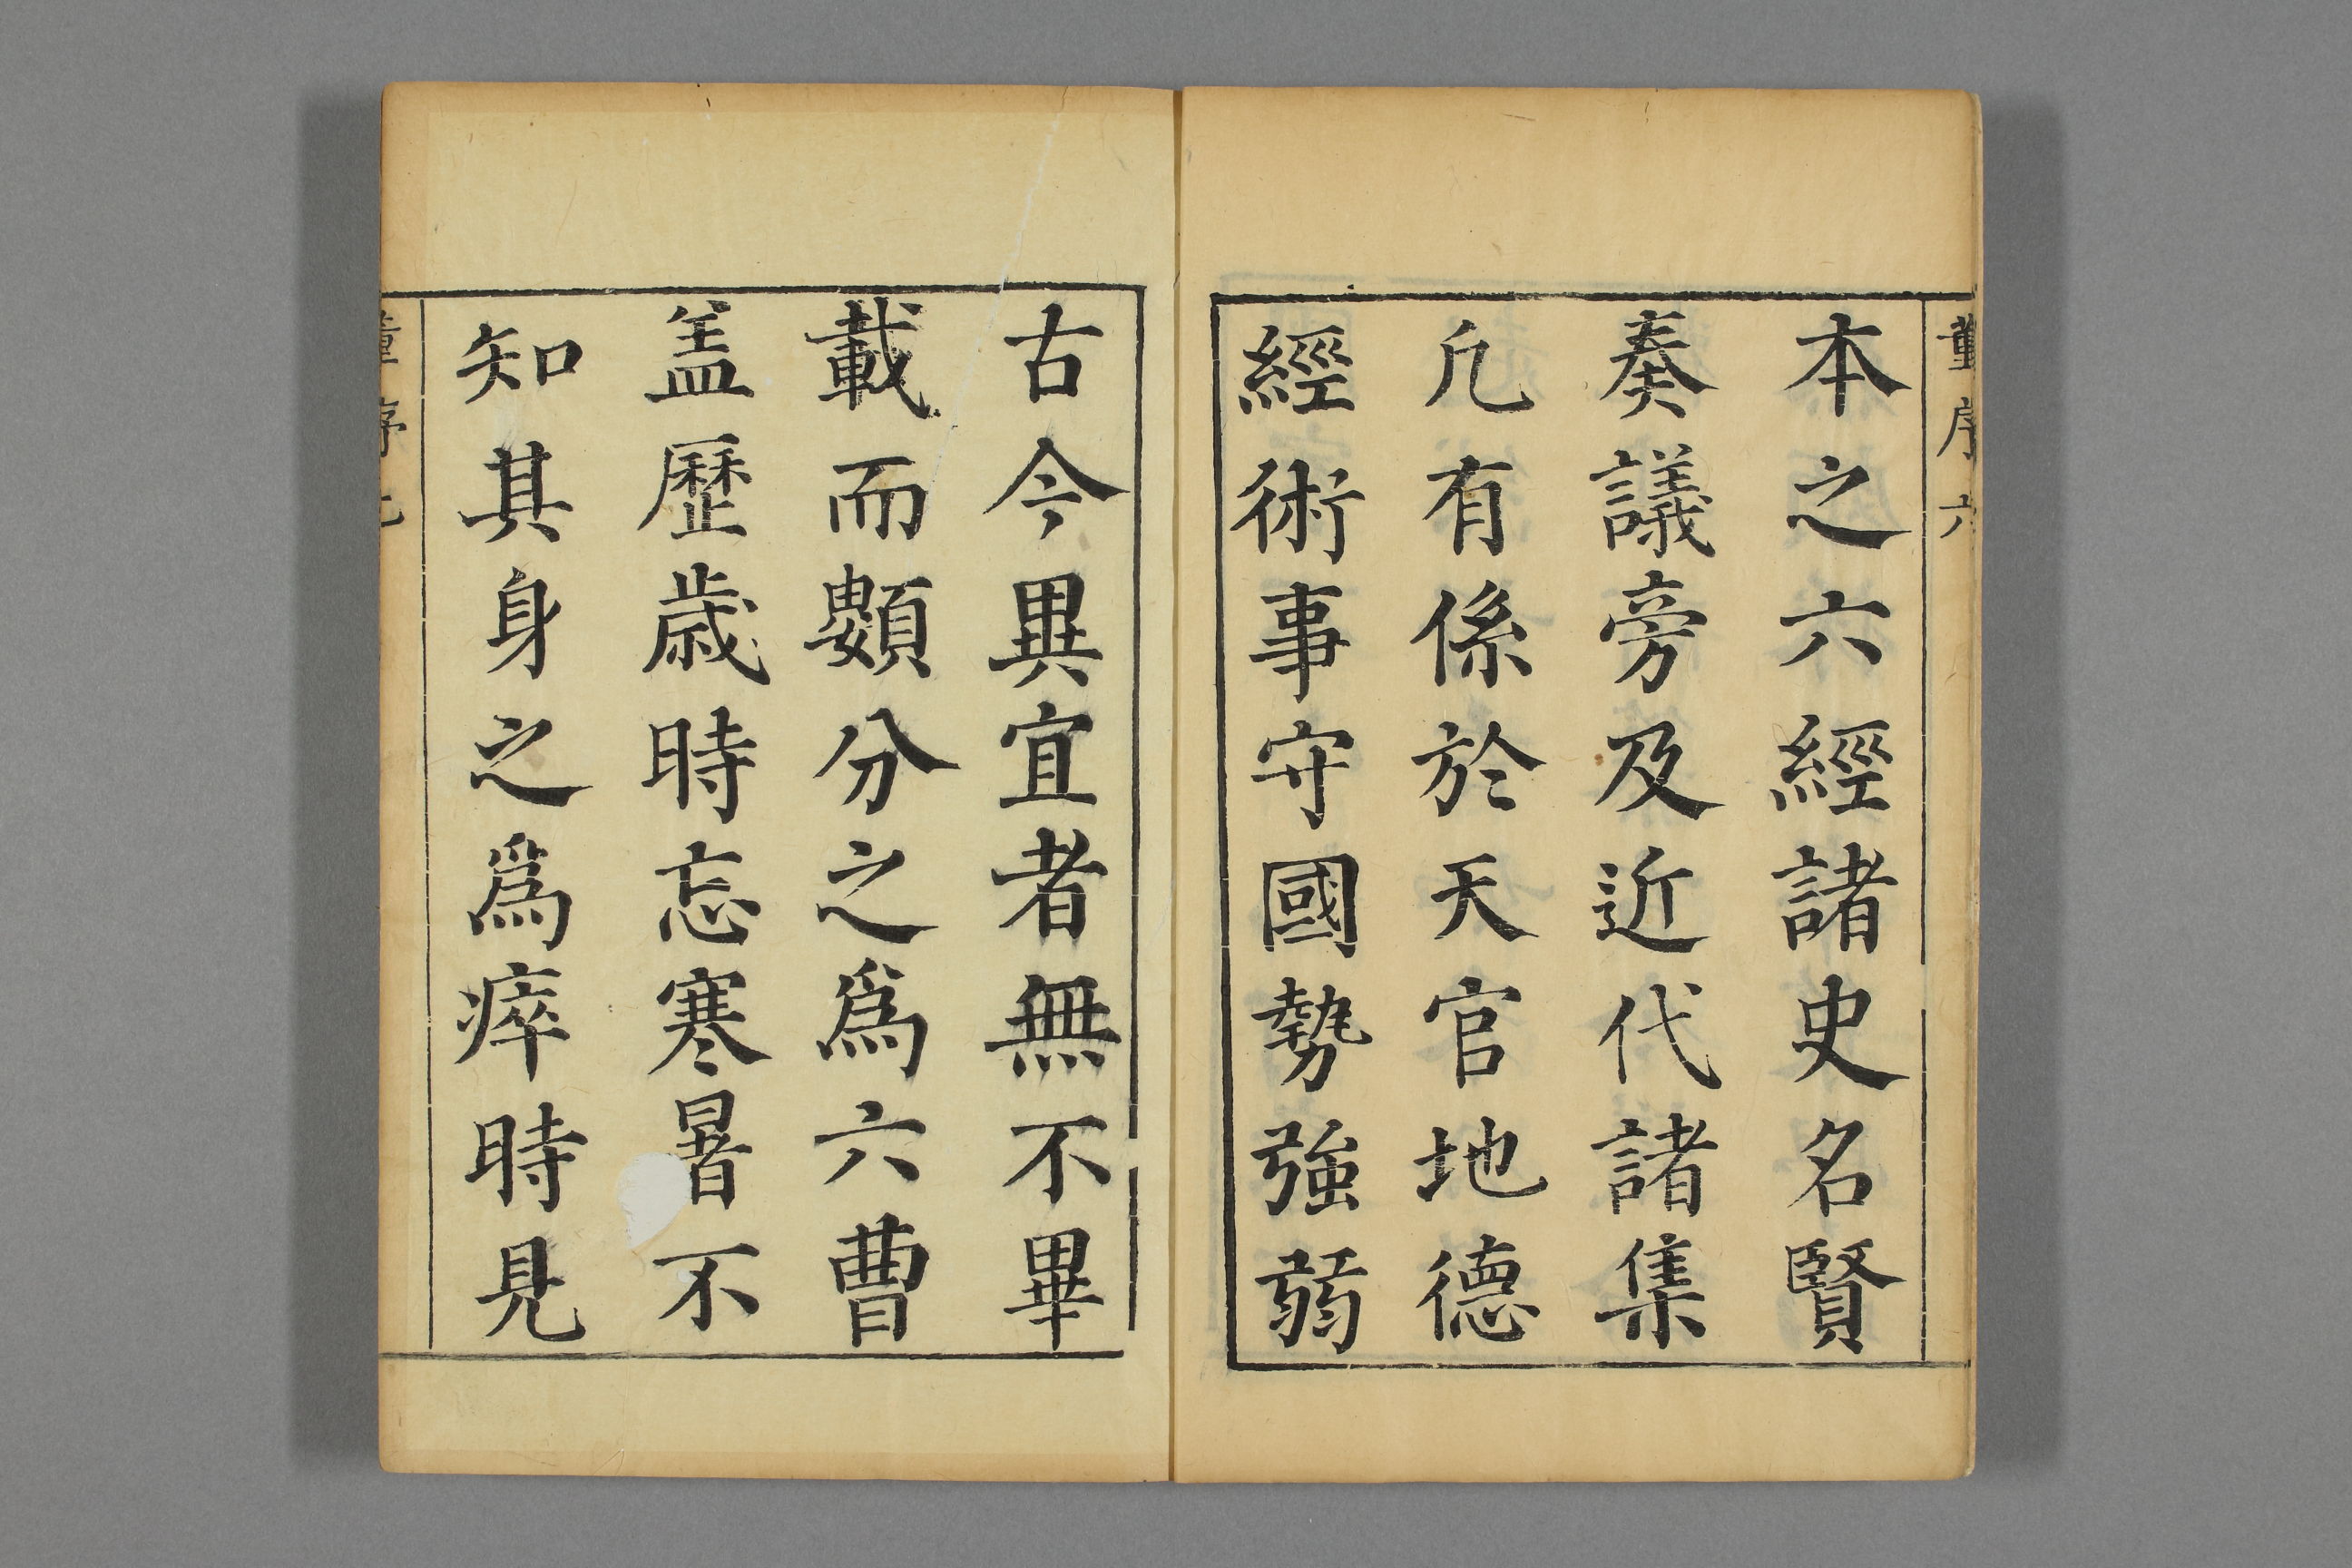 董序 六
本之六經諸史名賢
奏議旁及近代諸集
凢有係於天官地德
經術事守國勢強弱
古今異宜者無不畢
載而顭分之為六曹
盖歷歲時忘寒暑不
知其身之爲瘁時見
董序 七